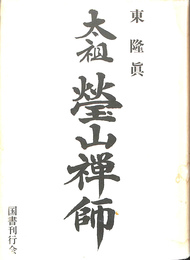 東隆眞
太祖
瑩山禅師
国書刊行会